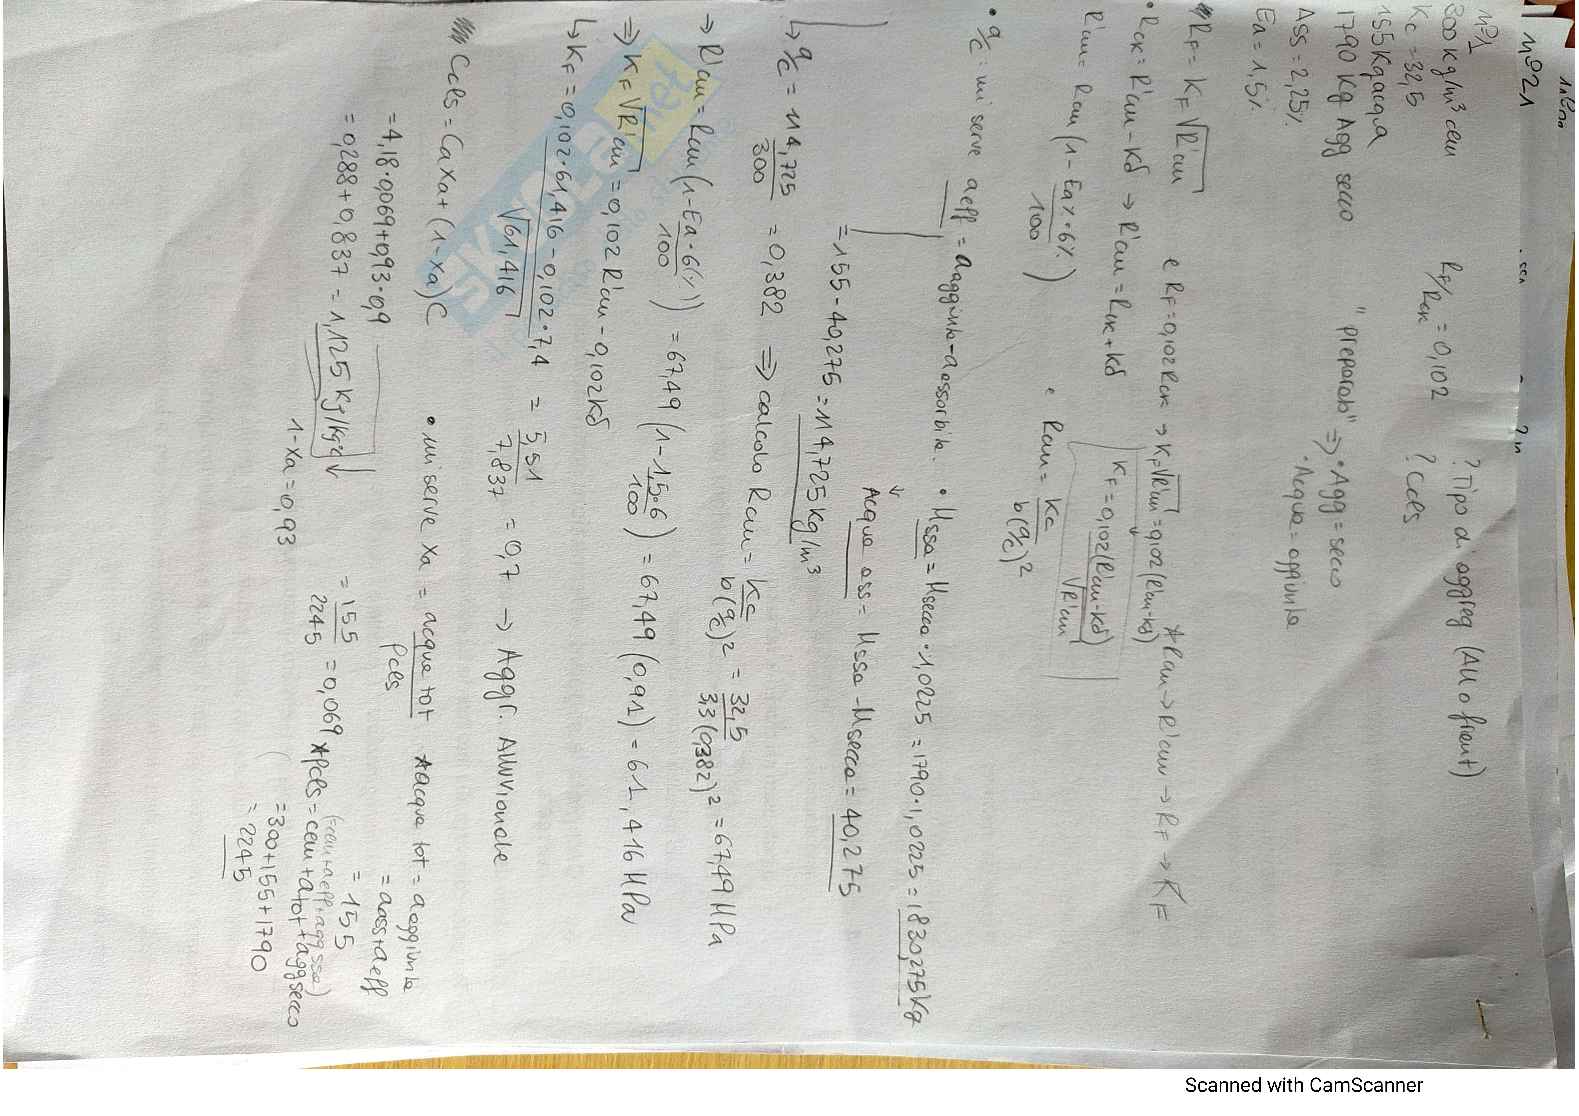 n°21
n°1
300 Kg/m³ cem
Kc = 32,5
155 Kg acqua
1790 Kg Agg secco
Ass = 2,25%
Ea = 1,5%
Rf/Rck = 0,102
? Tipo di aggreg (All o frant)
? Ccls
"preparato" ⇒ • Agg = secco
• Acqua = aggiunta
Rf = Kf √R'cm e Rf = 0,102 Rck → Kf √R'cm = 0,102 (R'cm - Kδ) * Rcm → R'cm → Rf → Kf
• Rck = R'cm - Kδ → R'cm = Rck + Kδ
Kf = 0,102 (R'cm - Kδ) / √R'cm
R'cm = Rcm (1 - Ea% · 6% / 100) e Rcm = Kc / b(a/c)²
• a/c = mi serve aeff = aaggiunta - aassorbita. • Mssa = Msecco · 1,0225 = 1790 · 1,0225 = 1830,275 Kg
Acqua ass = Mssa - Msecco = 40,275
= 155 - 40,275 = 114,725 Kg/m³
↳ a/c = 114,725 / 300 = 0,382 ⇒ calcolo Rcm = Kc / b(a/c)² = 32,5 / 3,3(0,382)² = 67,49 MPa
→ R'cm = Rcm (1 - Ea · 6(%) / 100) = 67,49 (1 - 1,5·6 / 100) = 67,49 (0,91) = 61,416 MPa
⇒ Kf √R'cm = 0,102 R'cm - 0,102 Kδ
↳ Kf = 0,102 · 61,416 - 0,102 · 7,4 / √61,416 = 5,51 / 7,837 = 0,7 → Aggr. Alluvionale
Ccls = Ca xa + (1 - xa) C
• mi serve xa = acqua tot / Pcls
* acqua tot = a aggiunta
= aass + aeff
= 155
= 4,18 · 0,069 + 0,93 · 0,9
= 0,288 + 0,837 = 1,125 Kj/Kg°C
= 155 / 2245 = 0,069
1 - xa = 0,93
(= cem + aeff + agg ssa)
* Pcls = cem + atot + agg secco
= 300 + 155 + 1790
= 2245
SKUOLA.net
Scanned with CamScanner